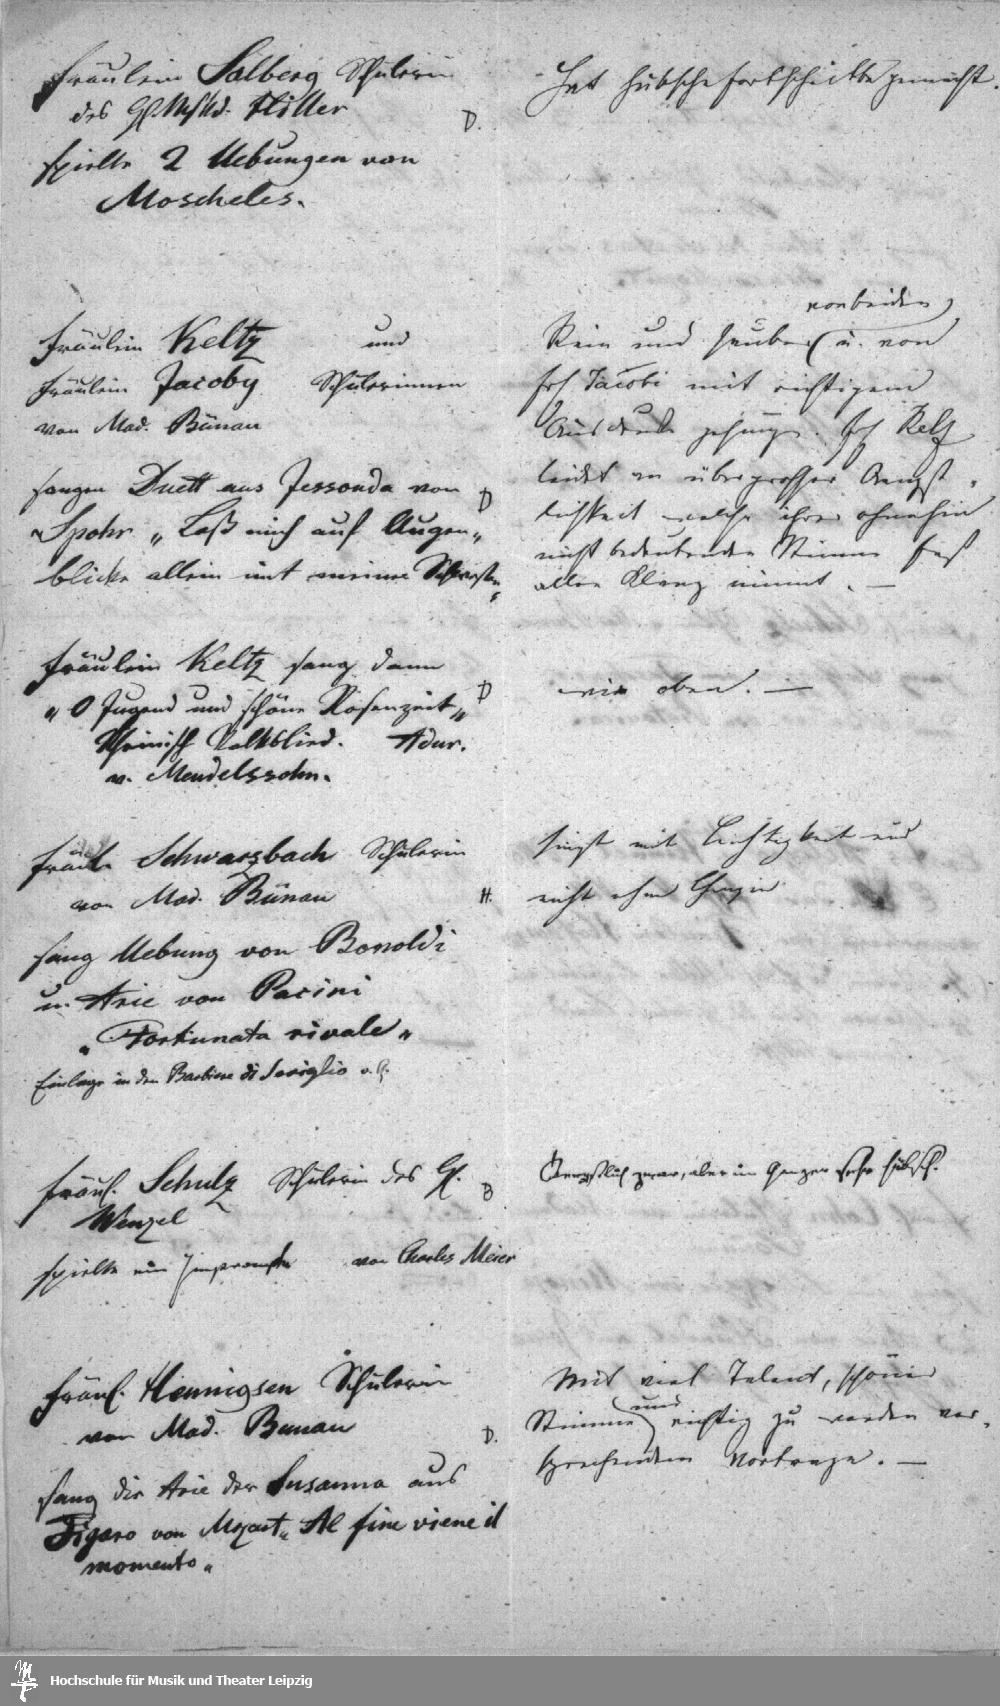 Fräulein Salberg Schülerin
des H. Mskd. Hiller D.
spielte 2 Uebungen von
Moscheles.
Hat hübsche Fortschritte gemacht.
Fräulein Keltz und
Fräulein Jacoby Schülerinnen
von Mad. Bünau
sangen Duett aus Jessonda von D
Spohr „Laß mich auf Augen„
blicke allein mit meiner Schwester„
von beiden
Rein und sauber u. von
Frl Jacobi mit richtigem
Ausdruck gesungen. Frl Keltz
leidet an übergrosser Aengst„
lichkeit welche ihrer ohnehin
nicht bedeutenden Stimme fast
allen Klang nimmt. —
Fräulein Keltz sang dann
„O Jugend und schöne Rosenzeit„ D
Rheinisch Volkslied. Adur.
v. Mendelssohn.
wie oben. —
Fräul. Schwarzbach Schülerin
von Mad. Bünau H.
sang Uebung von Bonoldi
u. Arie von Pacini
„Fortunata rivale„
Einlage in den Barbiere di Seviglio v. R.
singt mit Leichtigkeit und
nicht ohne Grazie
Fräul. Schulz Schülerin des H. D
Wenzel
spielte ein Impromptu von Charles Meier
Aengstlich zwar, aber im Ganzen sehr hübsch.
Fräul. Hennigsen Schülerin
von Mad. Bunau D.
sang die Arie der Susanna aus
Figaro von Mozart „Al fine viene il
momento„
Mit viel Talent, schöner
Stimme und richtig zu werden ver„
sprechendem Vortrage. —
Hochschule für Musik und Theater Leipzig